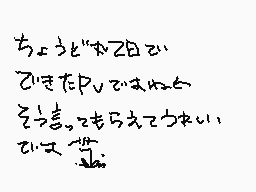 ちょうど2日でい
できたPVですねと
そう言ってもらえてうれしい
では